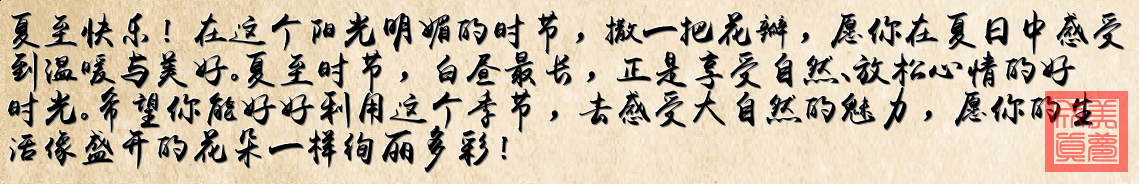 夏至快乐！在这个阳光明媚的时节，撒一把花瓣，愿你在夏日中感受
到温暖与美好。夏至时节，白昼最长，正是享受自然、放松心情的好
时光。希望你能好好利用这个季节，去感受大自然的魅力，愿你的生
活像盛开的花朵一样绚丽多彩！